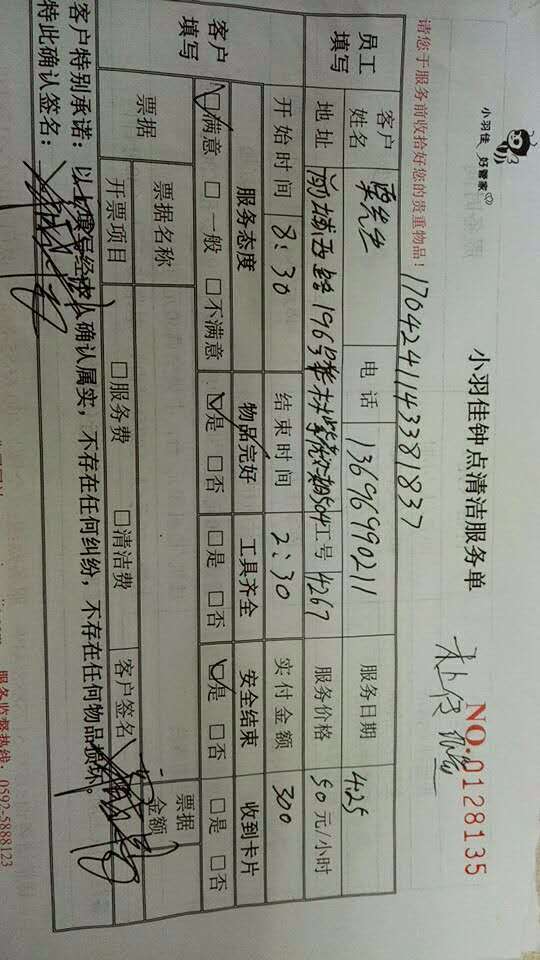 小羽佳 好管家
小羽佳钟点清洁服务单
NO.0128135
请您于服务前收拾好您的贵重物品!
1704241143381837
员工填写 客户姓名 栗先生 电话 13696990211 服务日期 4.25
地址 196号 504 工号 4267 服务价格 50元/小时
开始时间 8:30 结束时间 2:30 实付金额 300
客户填写 服务态度 物品完好 工具齐全 安全结束 收到卡片
☑满意 □一般 □不满意 ☑是 □否 □是 □否 ☑是 □否 □是 □否
票据 票据名称 客户签名 票据金额
开票项目 □服务费 □清洁费
客户特别承诺:以上填写经本人确认属实,不存在任何纠纷,不存在任何物品损坏。
特此确认签名:
服务监督热线:0592-5888123